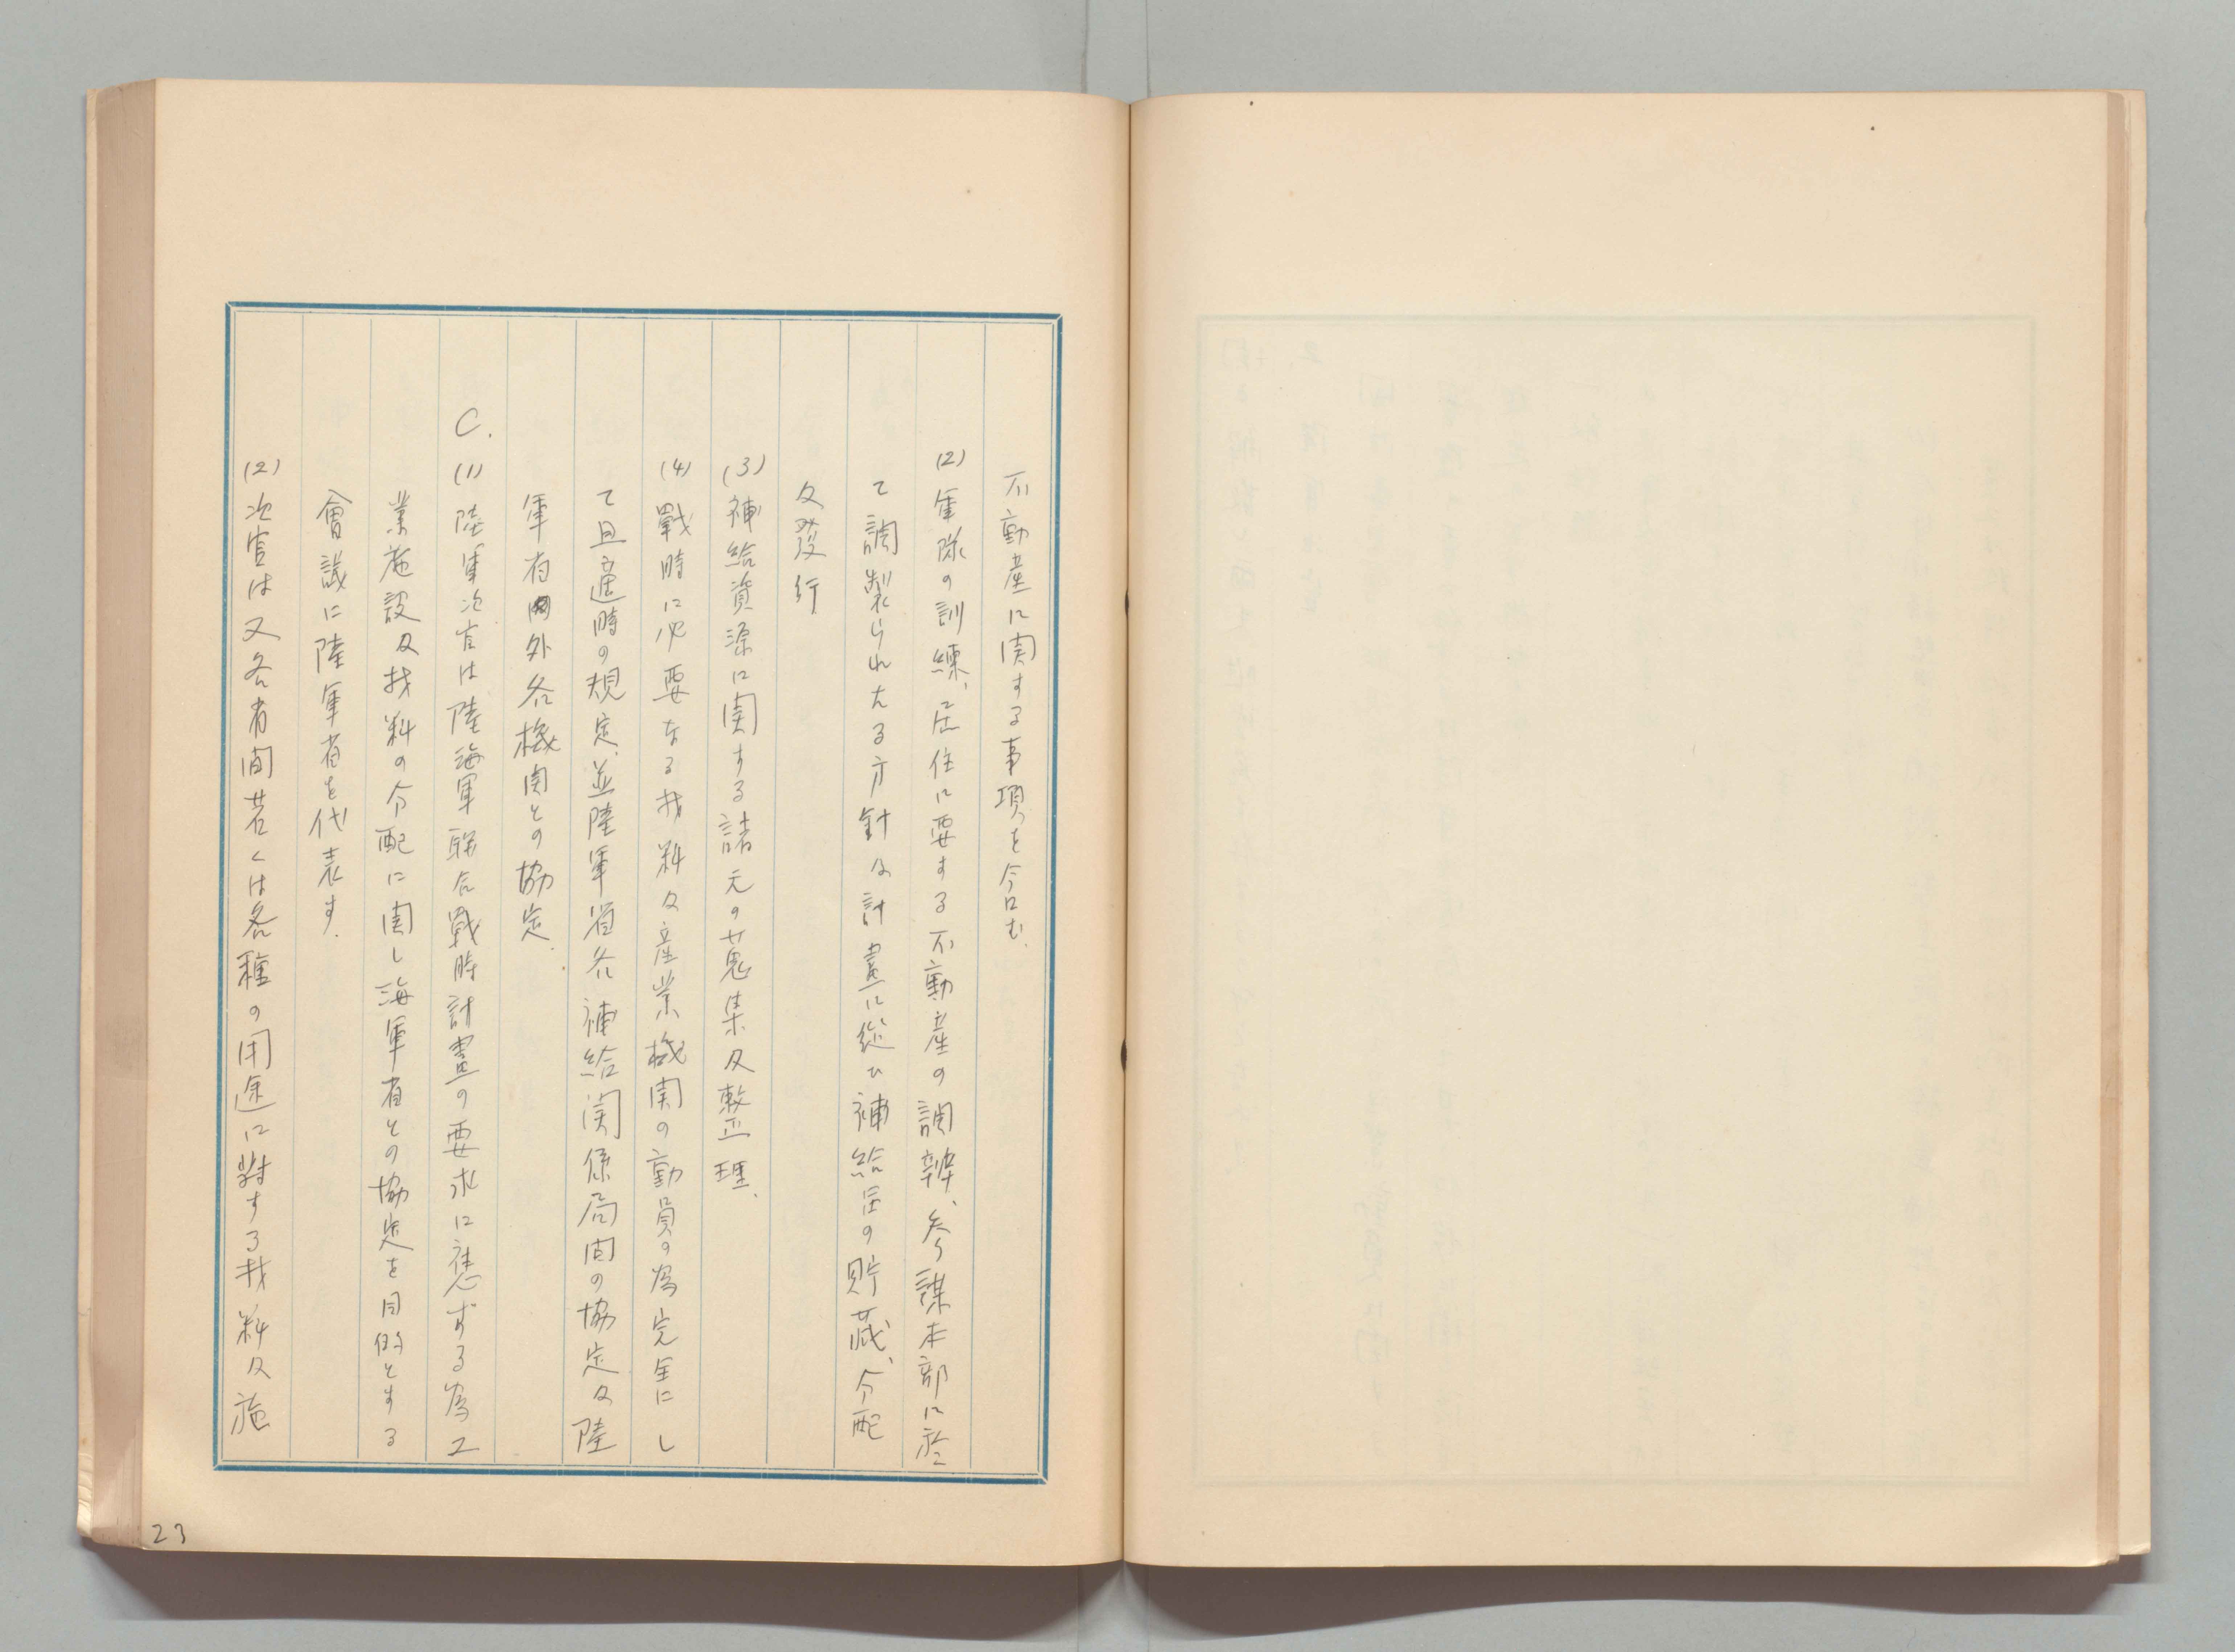 不動産に関する事項を含む.
(2) 軍隊の訓練、居住に要する不動産の調辨、参謀本部に於
て調製られたる方針及計畫に從ひ補給品の貯蔵、分配
及發行
(3) 補給資源に関する諸元の蒐集及整理、
(4) 戰時に必要なる材料及産業機関の動員の為完全にし
て且適時の規定、並陸軍省各補給関係局間の協定及陸
軍省内外各機関との協定.
C. (1) 陸軍次官は陸海軍聯合戰時計畫の要求に應ずる為工
業施設及材料の分配に関し海軍省との協定を目的とする
會議に陸軍省を代表す.
(2) 次官は又各省間若くは各種の用途に對する材料及施
23